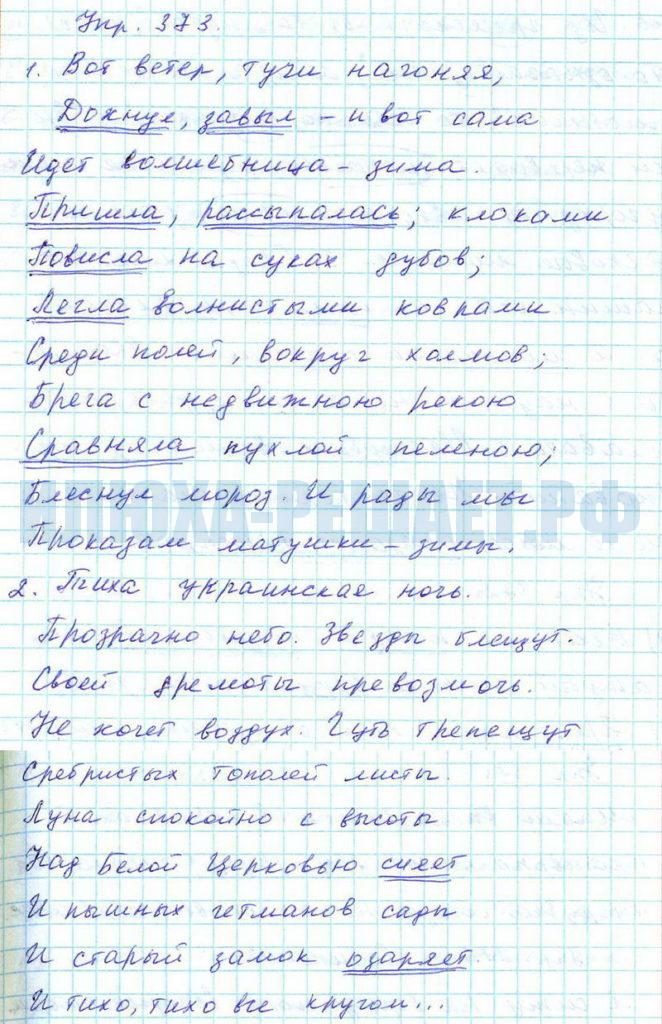 Упр. 373.
1. Вот ветер, тучи нагоняя,
Дохнул, завыл – и вот сама
Идет волшебница – зима.
Пришла, рассыпалась; клоками
Повисла на суках дубов;
Легла волнистыми коврами
Среди полей, вокруг холмов;
Брега с недвижною рекою
Сравняла пухлой пеленою;
Блеснул мороз. И рады мы
Проказам матушки – зимы.
2. Тиха украинская ночь.
Прозрачно небо. Звезды блещут.
Своей дремоты превозмочь.
Не хочет воздух. Чуть трепещут
Сребристых тополей листы.
Луна спокойно с высоты
Над Белой Церковью сияет
И пышных гетманов сады
И старый замок озаряет.
И тихо, тихо все кругом...